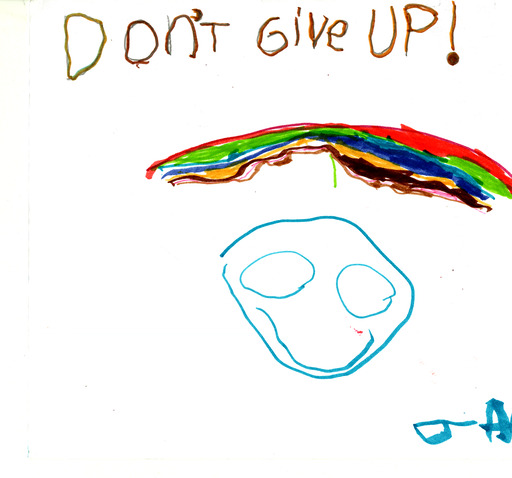 DON'T GIVE UP!